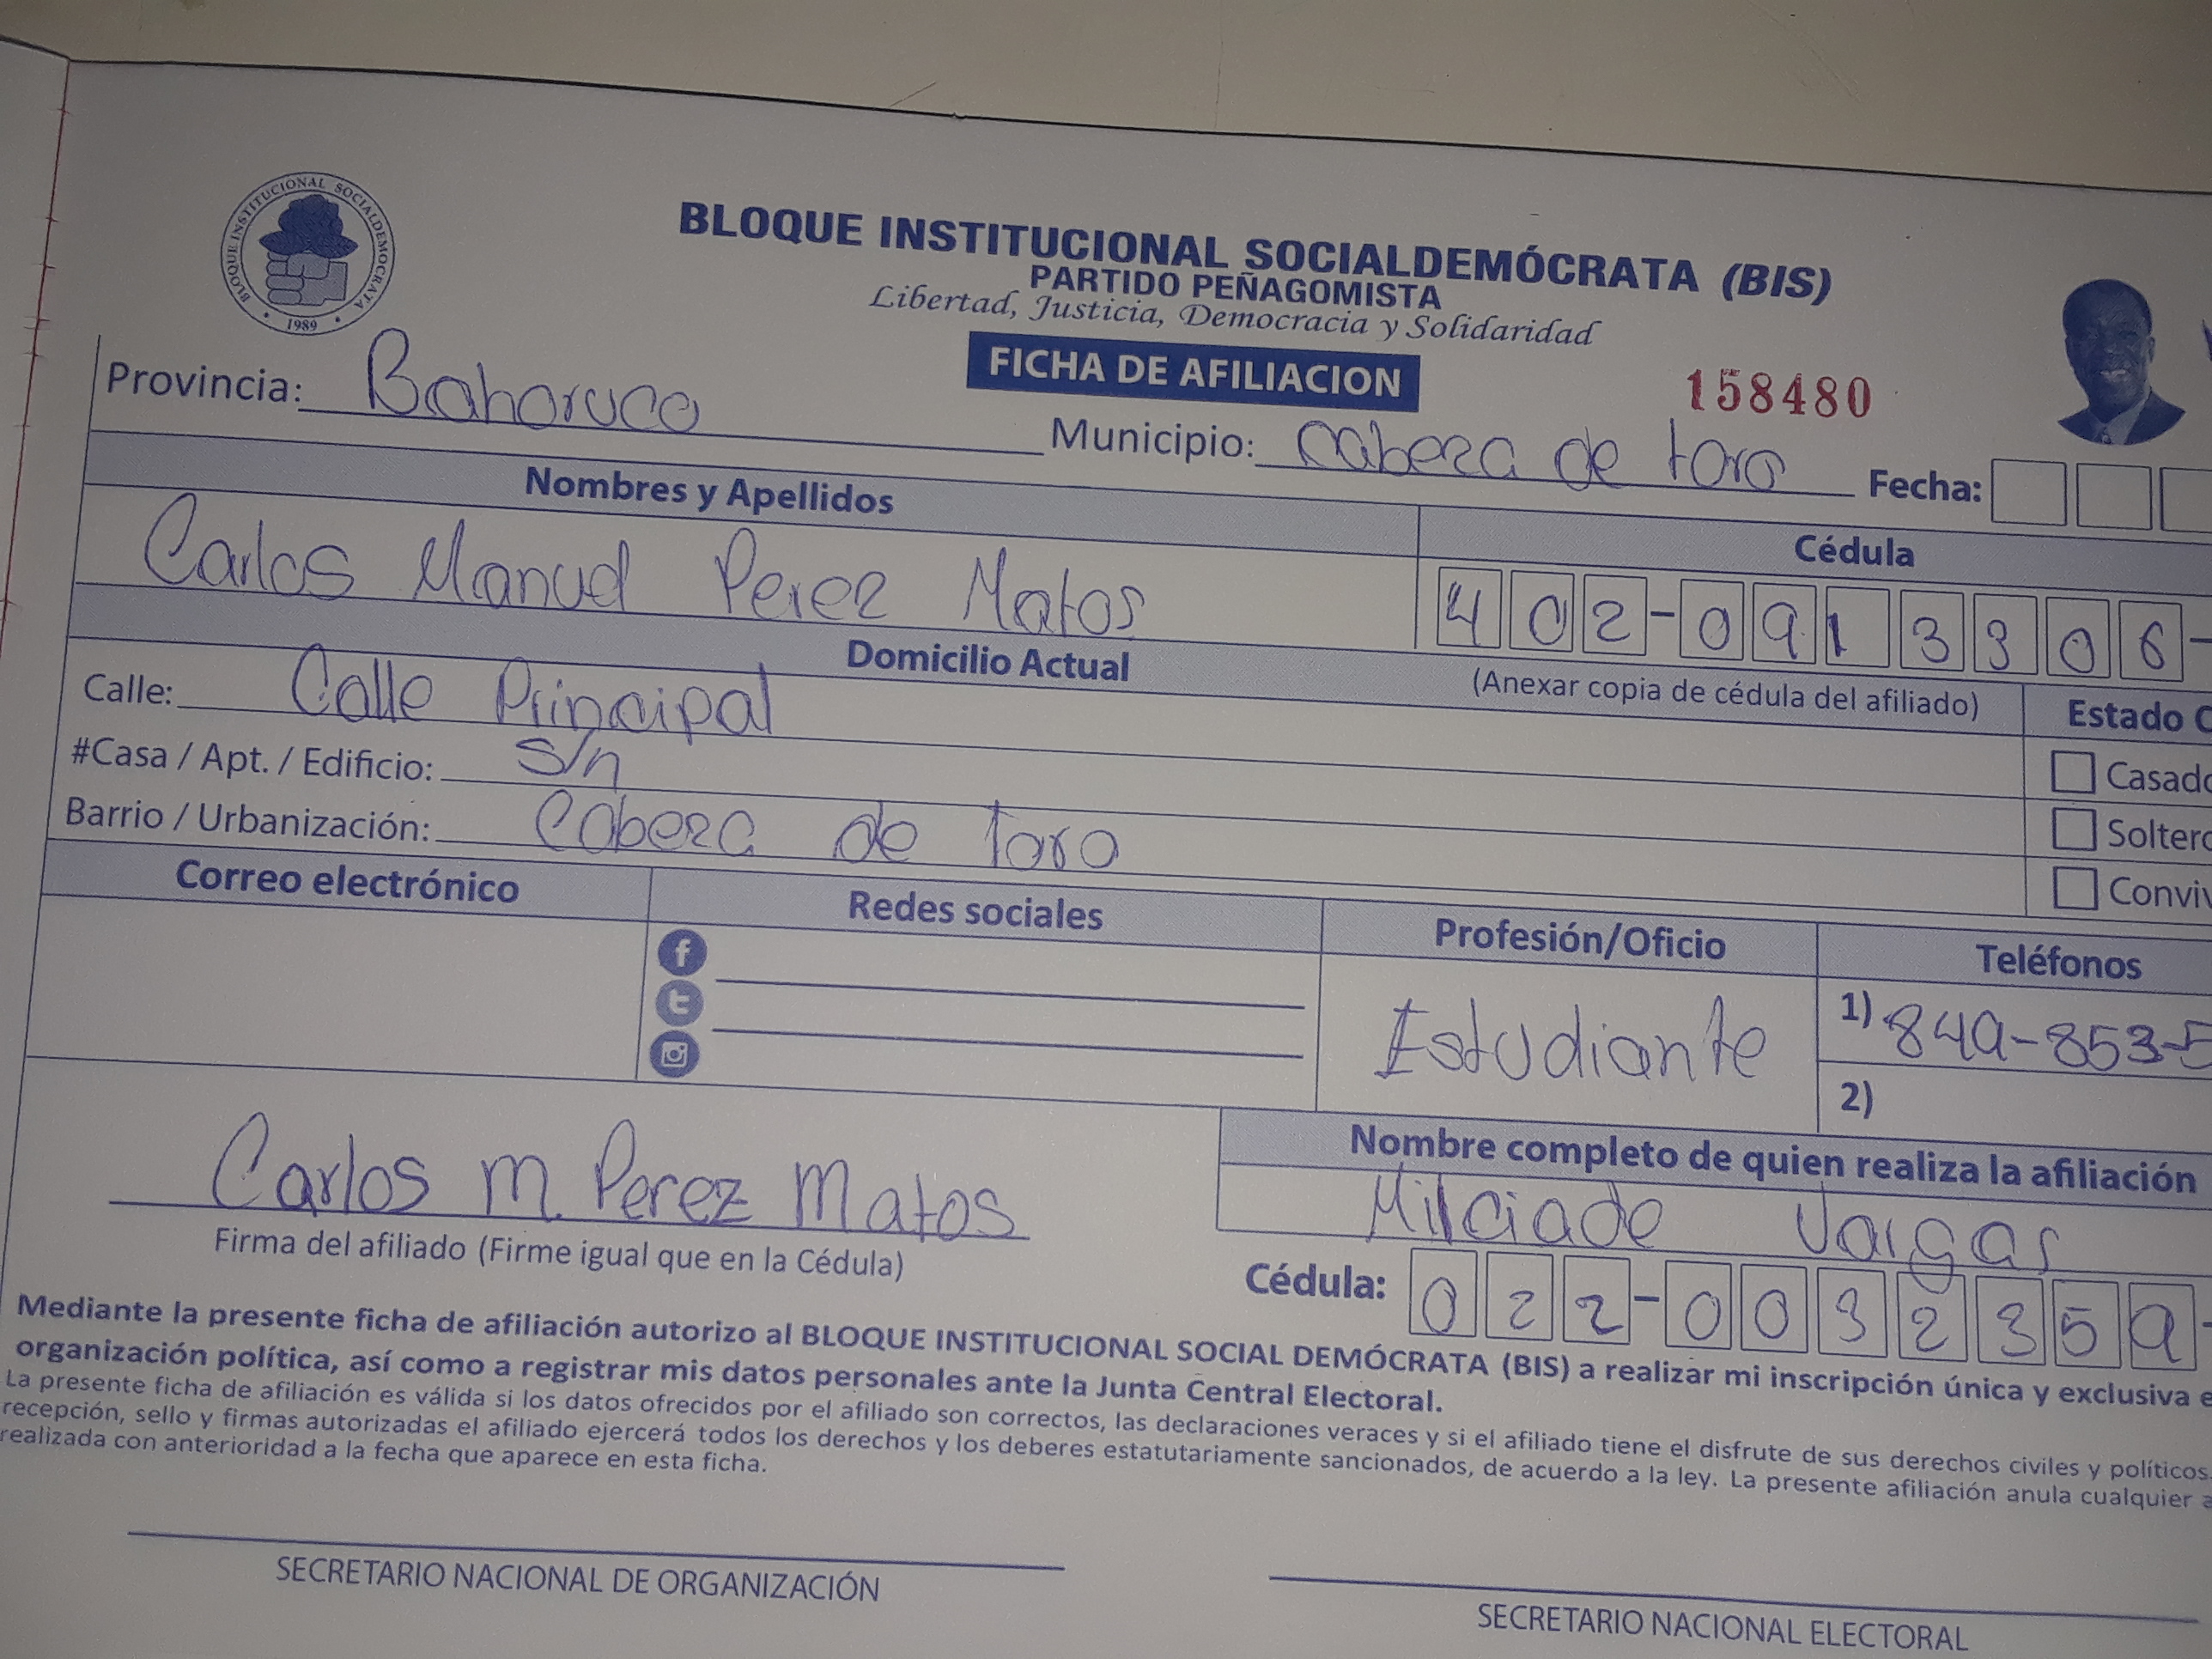 BLOQUE INSTITUCIONAL SOCIALDEMOCRATA
1989
BLOQUE INSTITUCIONAL SOCIALDEMÓCRATA (BIS)
PARTIDO PEÑAGOMISTA
Libertad, Justicia, Democracia y Solidaridad
FICHA DE AFILIACION
158480
Provincia: Bahoruco
Municipio: Cabeza de toro
Fecha:
Nombres y Apellidos
Cédula
Carlos Manuel Perez Matos
402-0913306-
Domicilio Actual
(Anexar copia de cédula del afiliado)
Estado C
Calle: Calle Principal
#Casa / Apt. / Edificio: s/n
Barrio / Urbanización: Cabeza de toro
Casado
Soltero
Conviv
Correo electrónico
Redes sociales
Profesión/Oficio
Teléfonos
Estudiante
1) 849-853-5
2)
Carlos M. Perez Matos
Firma del afiliado (Firme igual que en la Cédula)
Nombre completo de quien realiza la afiliación
Milciade Vargas
Cédula: 022-0032359-
Mediante la presente ficha de afiliación autorizo al BLOQUE INSTITUCIONAL SOCIAL DEMÓCRATA (BIS) a realizar mi inscripción única y exclusiva e
organización política, así como a registrar mis datos personales ante la Junta Central Electoral.
La presente ficha de afiliación es válida si los datos ofrecidos por el afiliado son correctos, las declaraciones veraces y si el afiliado tiene el disfrute de sus derechos civiles y políticos.
recepción, sello y firmas autorizadas el afiliado ejercerá todos los derechos y los deberes estatutariamente sancionados, de acuerdo a la ley. La presente afiliación anula cualquier a
realizada con anterioridad a la fecha que aparece en esta ficha.
SECRETARIO NACIONAL DE ORGANIZACIÓN
SECRETARIO NACIONAL ELECTORAL